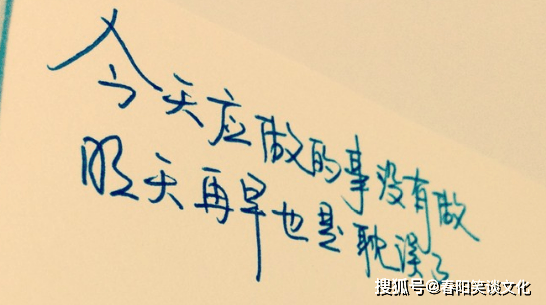 今天应做的事没有做
明天再早也是耽误了
搜狐号@春阳笑谈文化